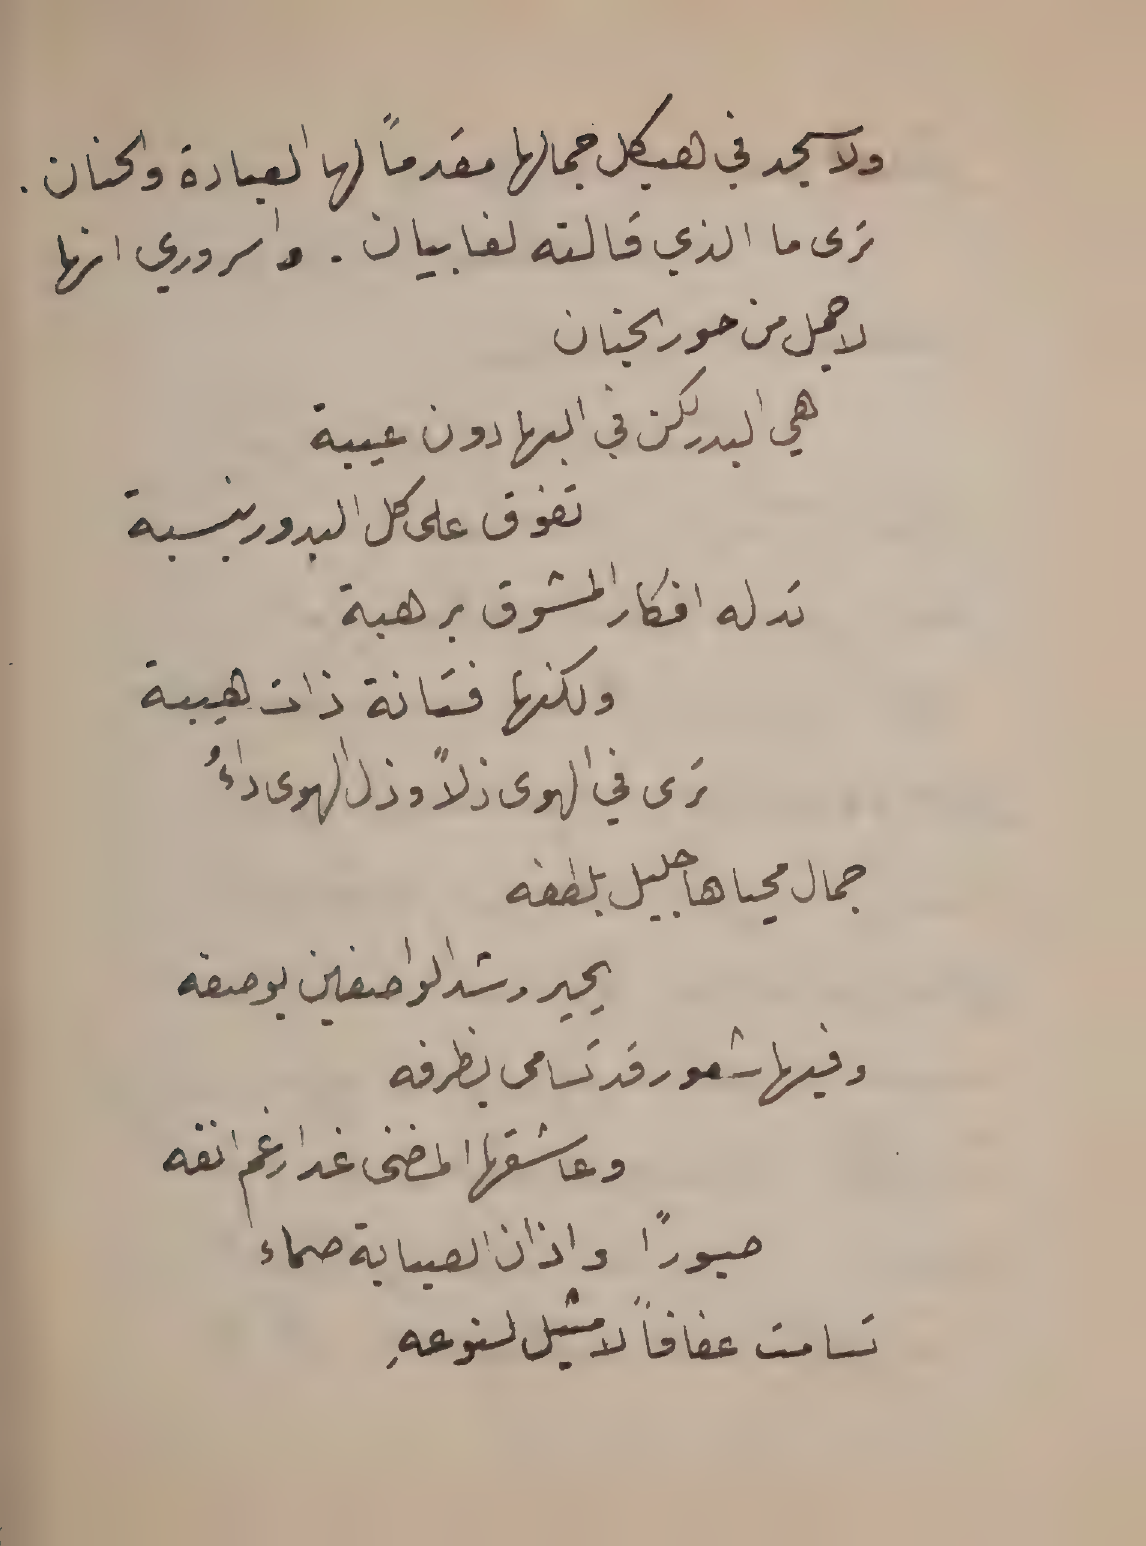 ولاسجد في هيكل جمالها مقدماً لها العبادة والحنان .
ترى ما الذي قالته لفابيان . واسروري انها
لاجمل من حور الجنان
هي البدر لكن في البها دون عيبة
تفوق على كل البدور بنسبة
تدله افكار المشوق برهبة
ولكنها فتانة ذات هيبة
ترى في الهوى ذلاً وذل الهوى داءُ
جمال محياها جليل بلطفه
يحير رشد الواصفين بوصفه
وفيها شعور قد تسامى بظرفه
وعاشقها المضنى غدا رغم انفه
صبورًا واذان الصبابة صماء
تسامت عفافاً لا مثيل لنوعهِ